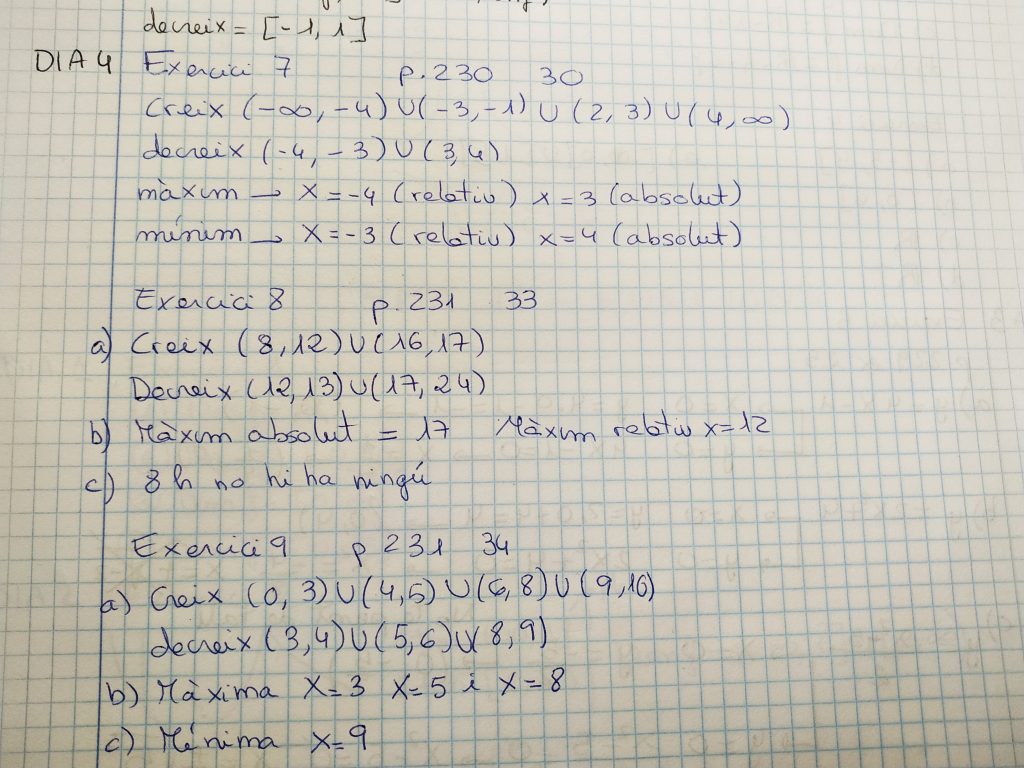 decreix = [-1, 1]
DIA 4 Exercici 7 p. 230 30
Creix (-∞, -4) ∪ (-3, -1) ∪ (2, 3) ∪ (4, ∞)
decreix (-4, -3) ∪ (3, 4)
màxim → x = -4 (relatiu) x = 3 (absolut)
mínim → x = -3 (relatiu) x = 4 (absolut)
Exercici 8 p. 231 33
a) Creix (8, 12) ∪ (16, 17)
Decreix (12, 13) ∪ (17, 24)
b) Màxim absolut = 17 Màxim relatiu x = 12
c) 8 h no hi ha ningú
Exercici 9 p 231 34
a) Creix (0, 3) ∪ (4, 5) ∪ (6, 8) ∪ (9, 10)
decreix (3, 4) ∪ (5, 6) ∪ (8, 9)
b) Màxima x = 3 x = 5 i x = 8
c) Mínima x = 9